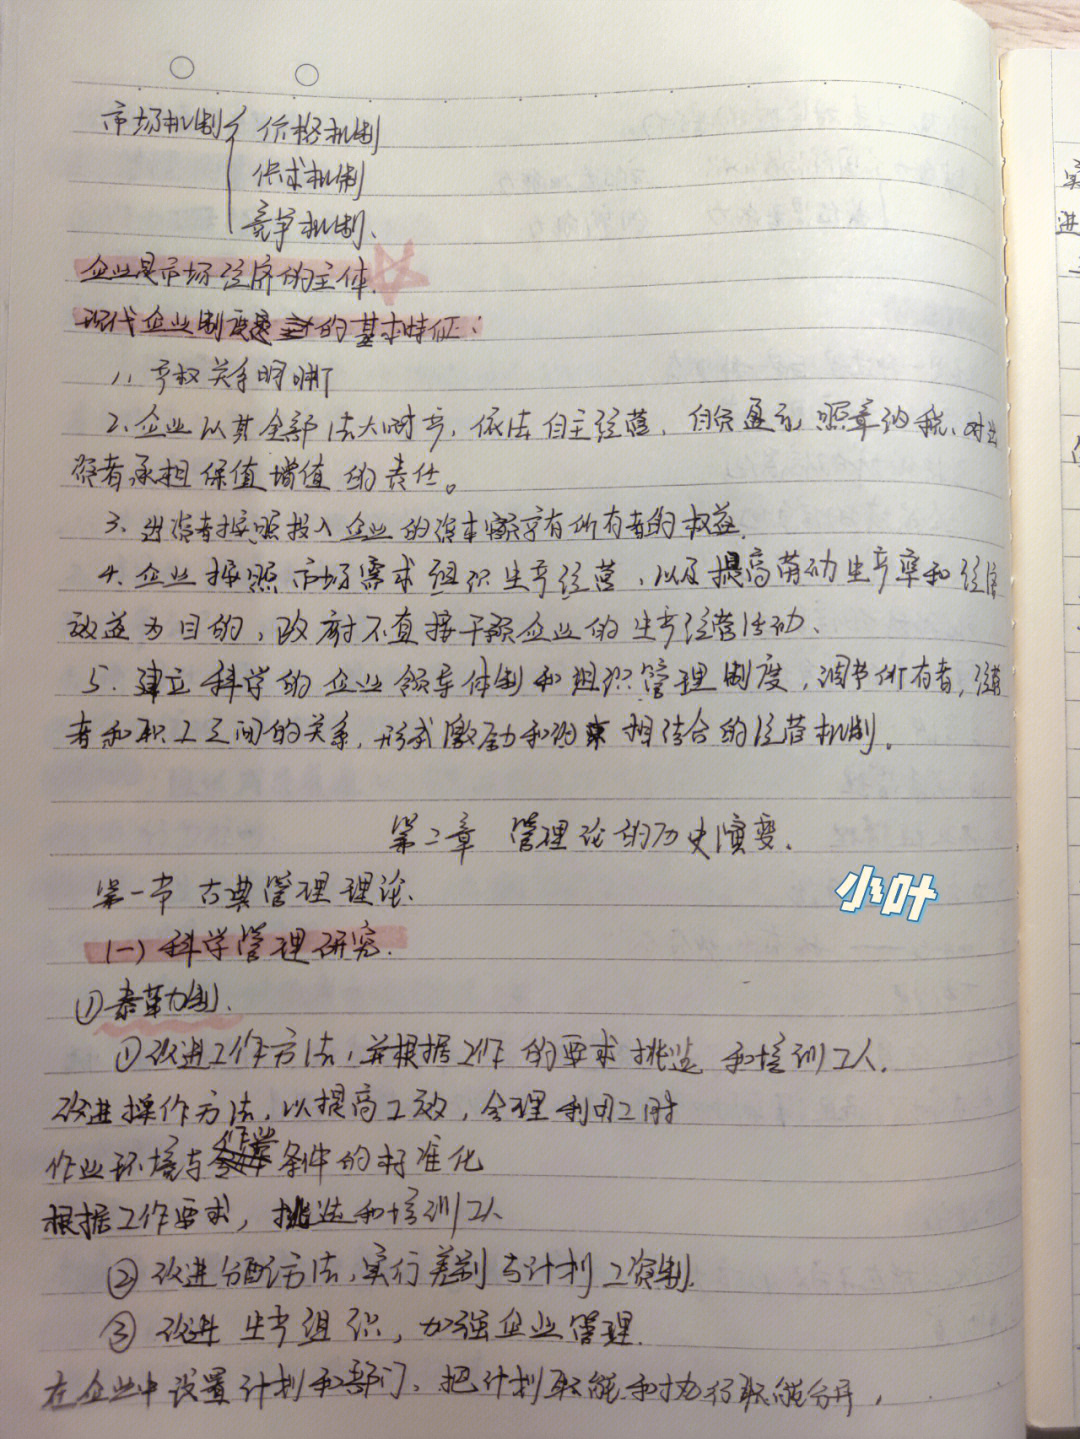 市场机制 价格机制
供求机制
竞争机制、
企业是市场经济的主体.
现代企业制度是 的基本特征:
1、产权关系明晰
2、企业以其全部法人财产,依法自主经营,自负盈亏,照章纳税、对出
资者承担保值增值的责任。
3、出资者按照投入企业的资本额享有所有者的权益.
4、企业按照市场需求组织生产经营,以及提高劳动生产率和经济
效益为目的,政府不直接干预企业的生产经营活动、
5、建立科学的企业领导体制和组织管理制度,调节所有者,经营
者和职工之间的关系,形成激励和约束相结合的经营机制。
第二章 管理论的历史演变.
小叶
第一节 古典管理理论.
(一)科学管理研究.
①泰勒制.
①改进工作方法,并根据工作的要求挑选和培训工人.
改进操作方法,以提高工效,合理利用工时
作业环境与作业条件的标准化
根据工作要求,挑选和培训工人
②改进分配方法,实行差别与计划工资制.
③改进生产组织,加强企业管理.
在企业中设置计划和部门、把计划职能和执行职能分开,